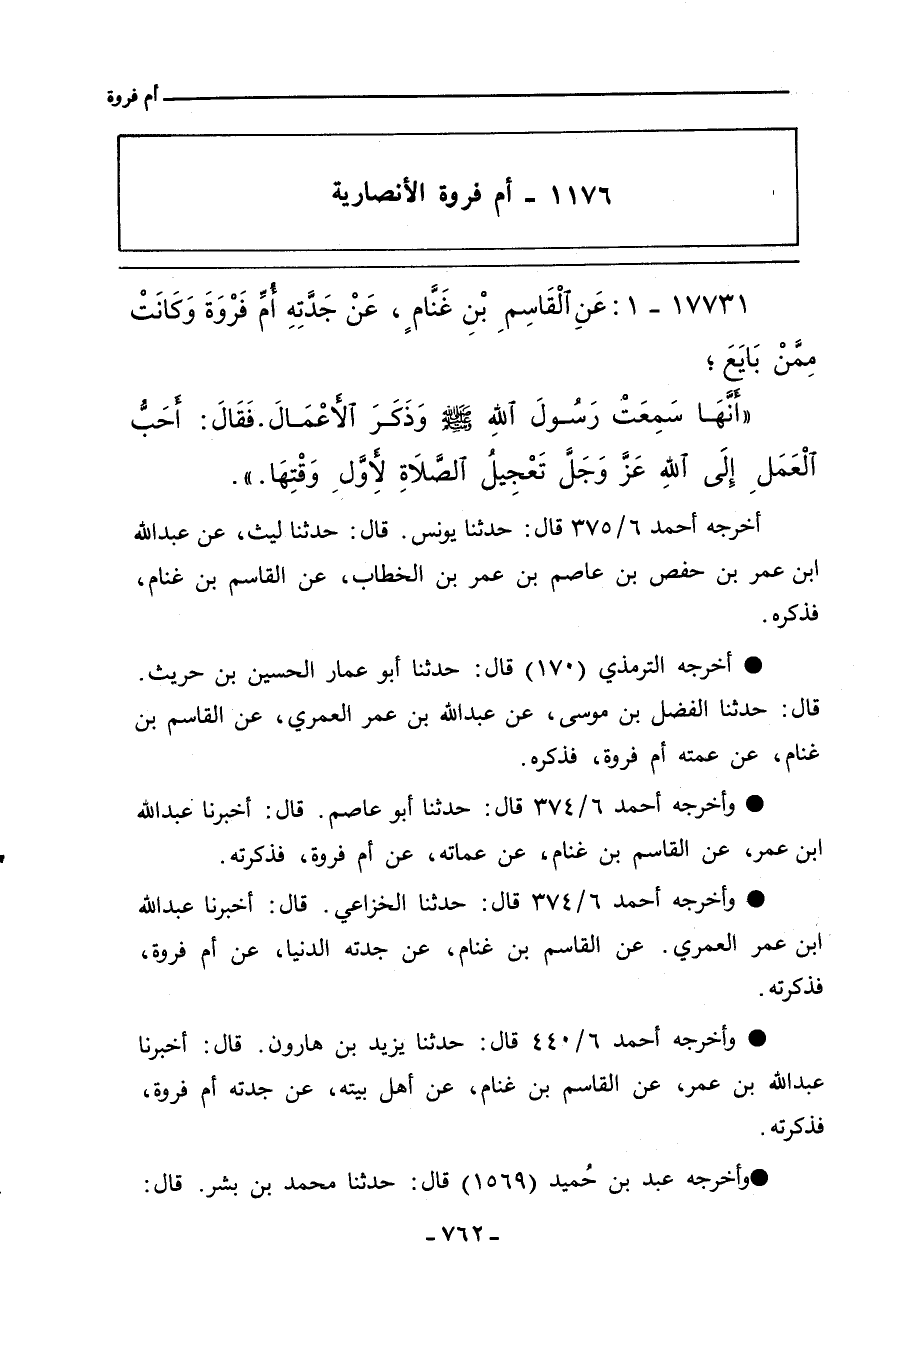 أم فروة
١١٧٦ - أم فروة الأنصارية
١٧٧٣١ - ١ : عَنِ ٱلْقَاسِمِ بْنِ غَنَّامٍ ، عَنْ جَدَّتِهِ أُمِّ فَرْوَةَ وَكَانَتْ
مِمَّنْ بَايَعَ ؛
«أَنَّهَا سَمِعَتْ رَسُولَ ٱللهِ ﷺ وَذَكَرَ ٱلأَعْمَالَ . فَقَالَ : أَحَبُّ
ٱلْعَمَلِ إِلَى ٱللهِ عَزَّ وَجَلَّ تَعْجِيلُ ٱلصَّلَاةِ لِأَوَّلِ وَقْتِهَا . » .
أخرجه أحمد ٣٧٥/٦ قال : حدثنا يونس . قال : حدثنا ليث ، عن عبدالله
ابن عمر بن حفص بن عاصم بن عمر بن الخطاب ، عن القاسم بن غنام ،
فذكره .
● أخرجه الترمذي (١٧٠) قال : حدثنا أبو عمار الحسين بن حريث .
قال : حدثنا الفضل بن موسى ، عن عبدالله بن عمر العمري ، عن القاسم بن
غنام ، عن عمته أم فروة ، فذكره .
● وأخرجه أحمد ٣٧٤/٦ قال : حدثنا أبو عاصم . قال : أخبرنا عبدالله
ابن عمر ، عن القاسم بن غنام ، عن عماته ، عن أم فروة ، فذكرته .
● وأخرجه أحمد ٣٧٤/٦ قال : حدثنا الخزاعي . قال : أخبرنا عبدالله
ابن عمر العمري . عن القاسم بن غنام ، عن جدته الدنيا ، عن أم فروة ،
فذكرته .
● وأخرجه أحمد ٤٤٠/٦ قال : حدثنا يزيد بن هارون . قال : أخبرنا
عبدالله بن عمر ، عن القاسم بن غنام ، عن أهل بيته ، عن جدته أم فروة ،
فذكرته .
● وأخرجه عبد بن حُميد (١٥٦٩) قال : حدثنا محمد بن بشر . قال :
- ٧٦٢ -